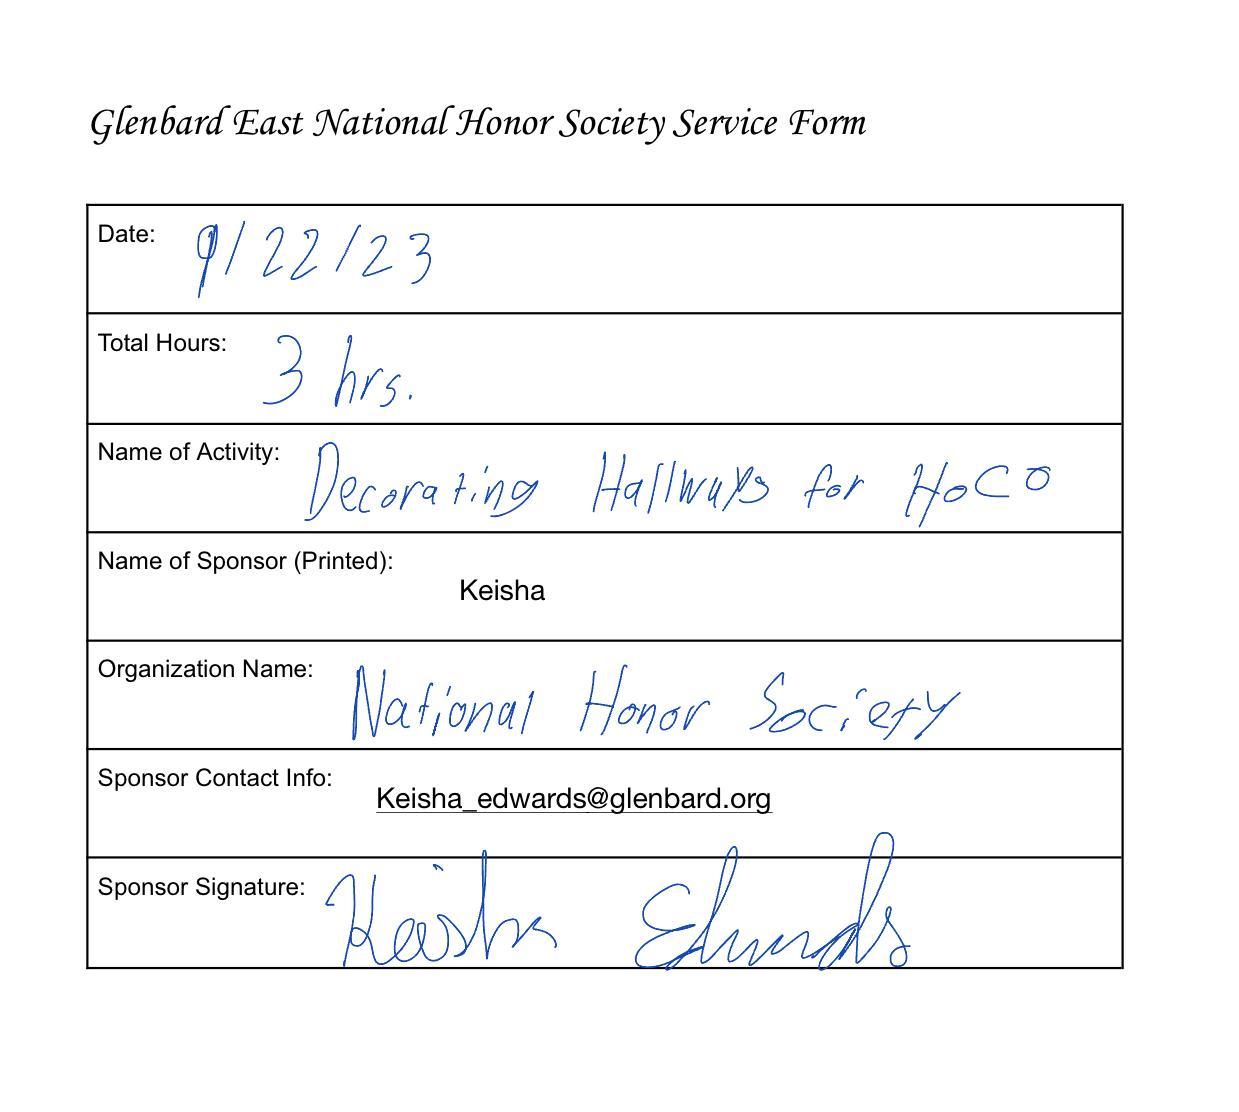 Glenbard East National Honor Society Service Form
Date: 9/22/23
Total Hours: 3 hrs.
Name of Activity: Decorating Hallways for HoCo
Name of Sponsor (Printed):
Keisha
Organization Name: National Honor Society
Sponsor Contact Info: Keisha_edwards@glenbard.org
Sponsor Signature: Keisha Edwards